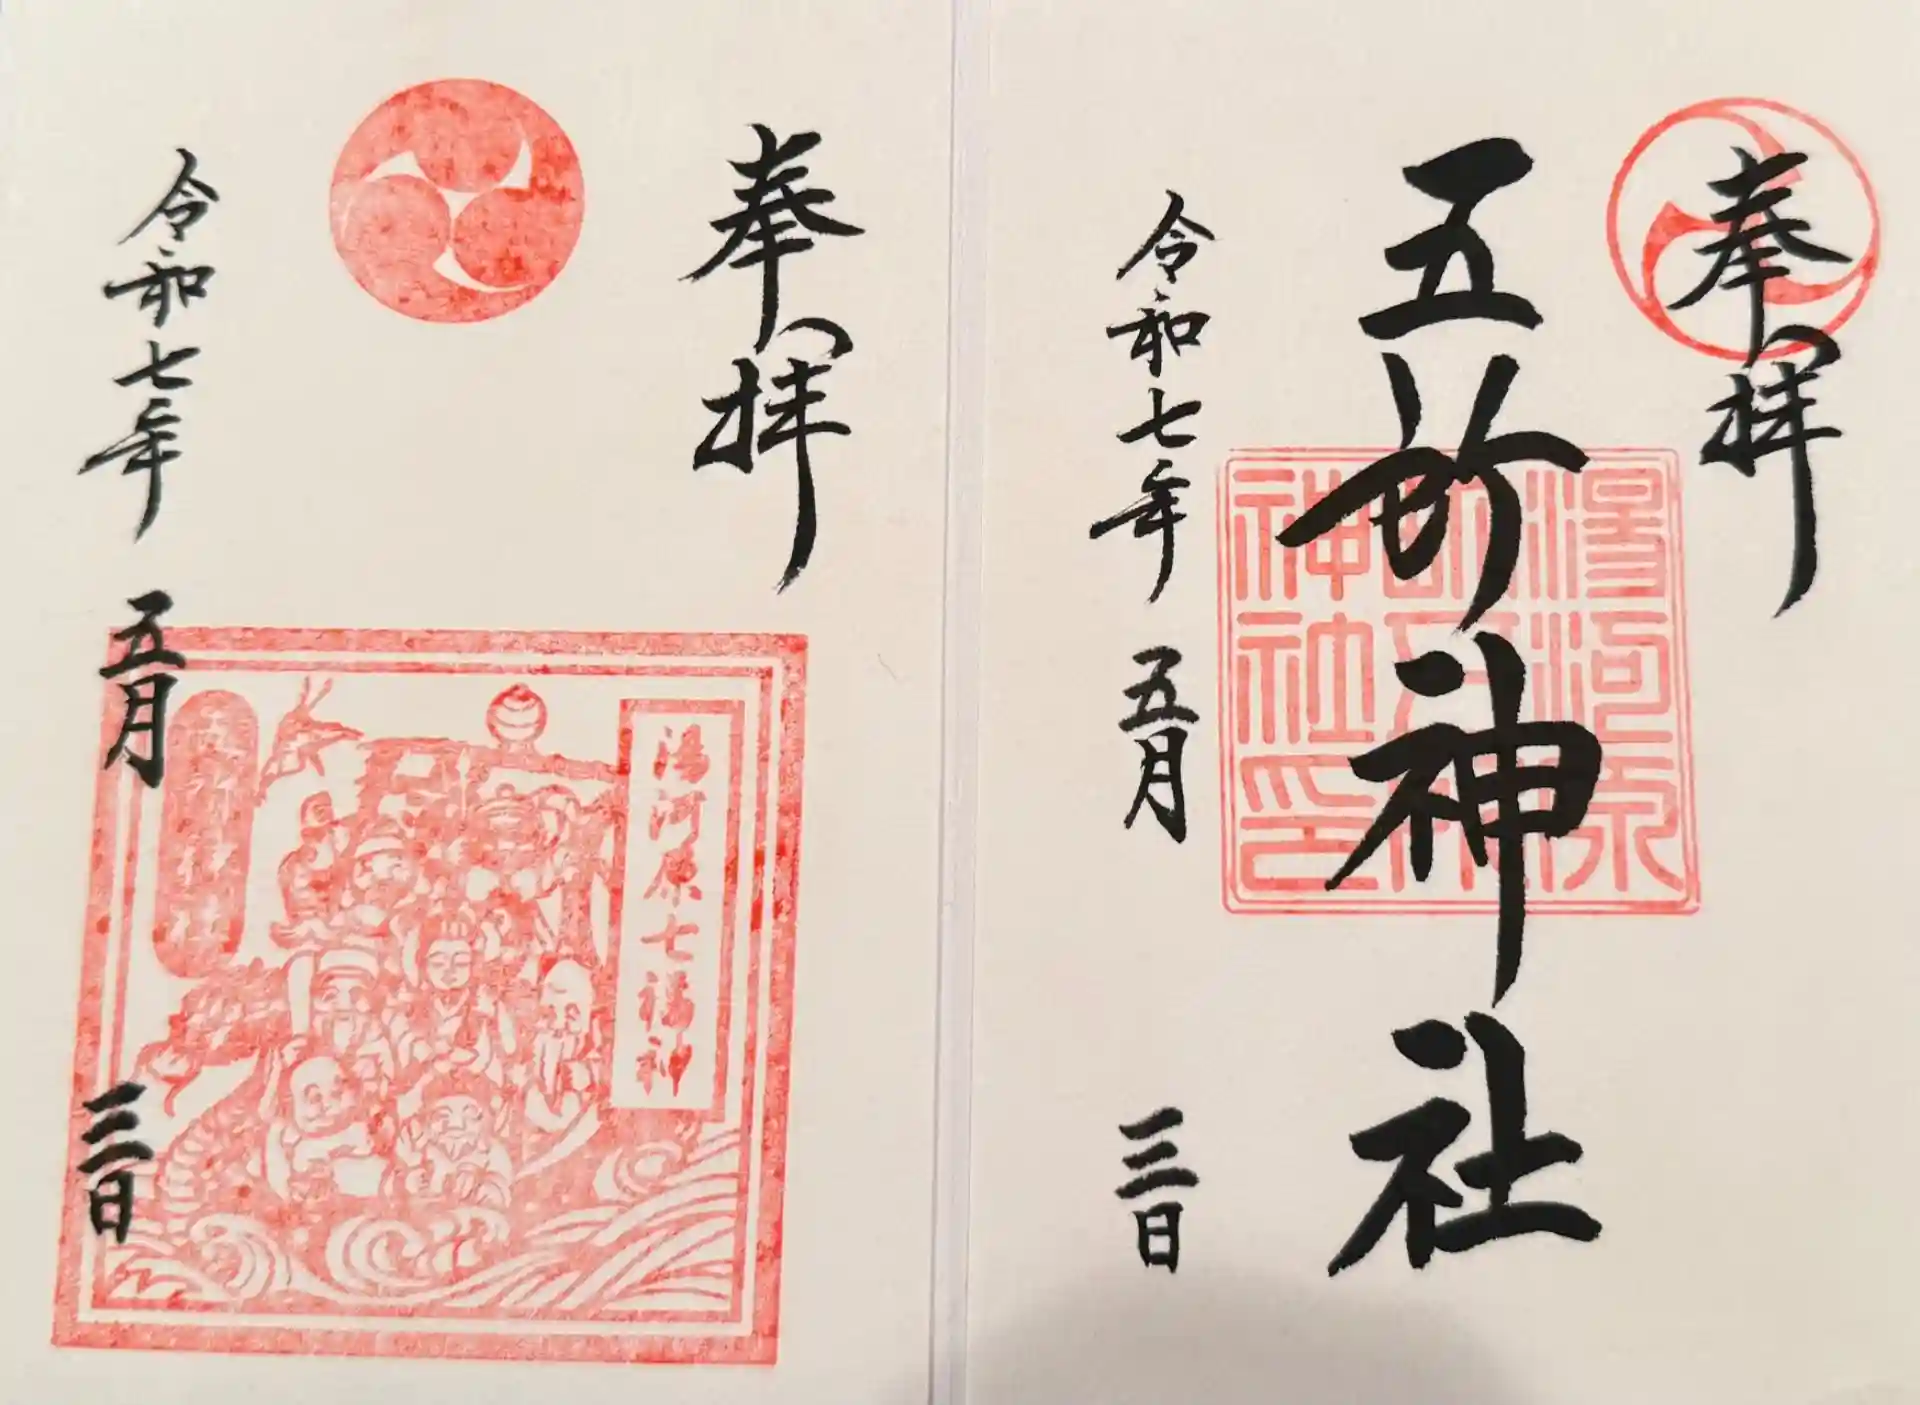 奉拝
五所神社
湯河原
五所神
神社印
令和七年 五月 三日
奉拝
湯河原七福神
五所神社
令和七年 五月 三日